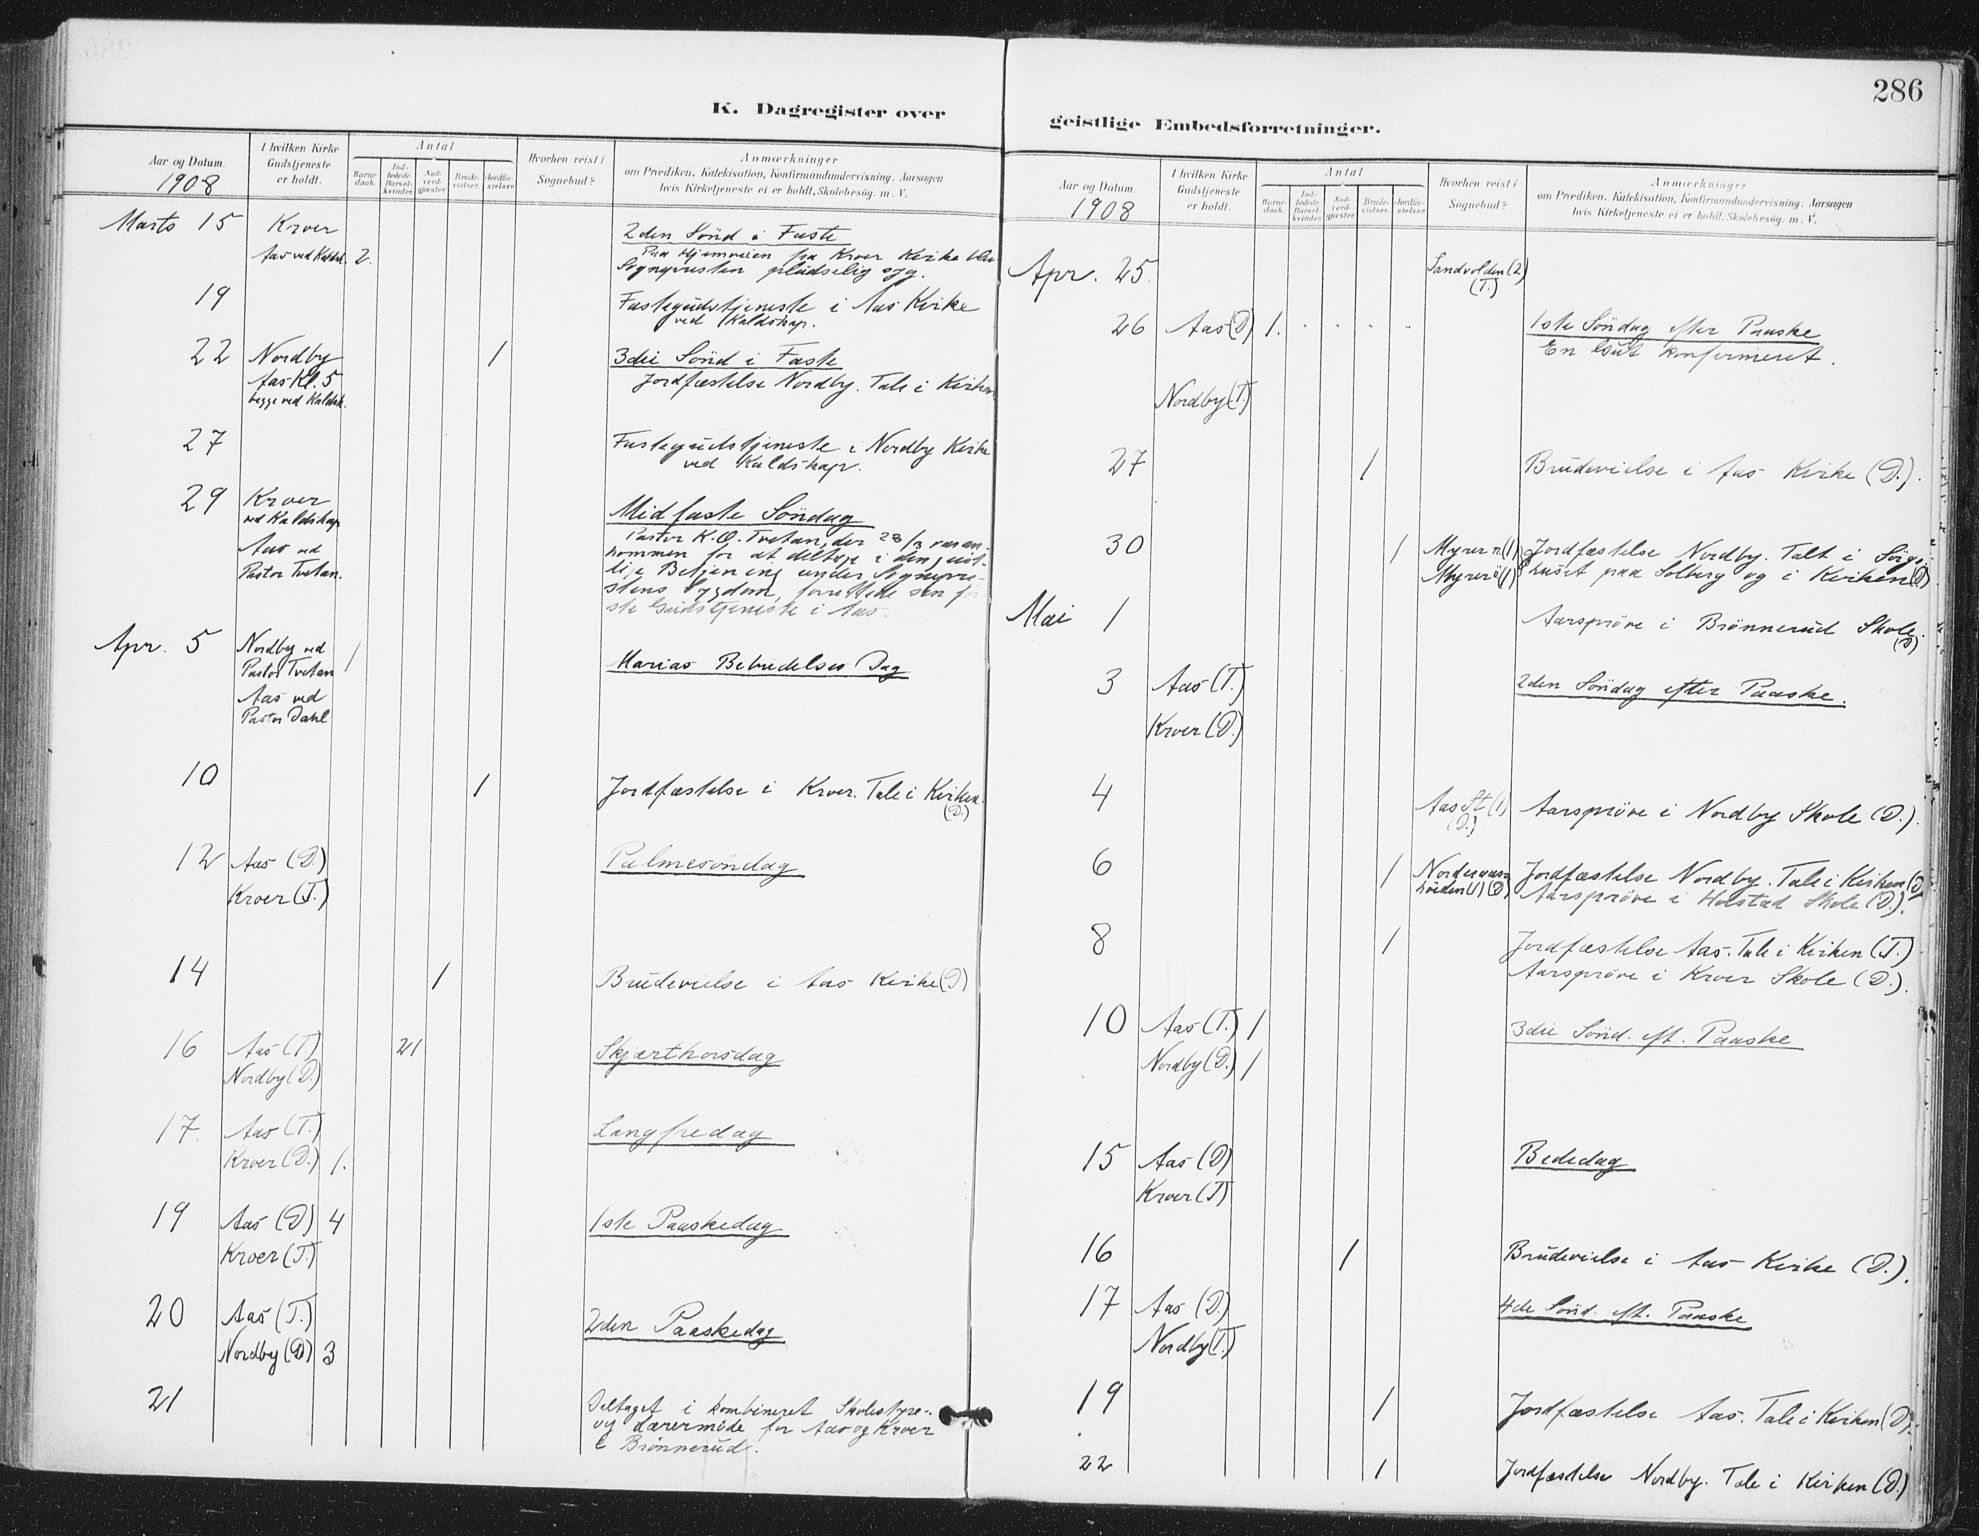 286
K. Dagregister over
geistlige Embedsforretninger.
Aar og Datum.
1908
I hvilken Kirke
Gudstjeneste
er holdt.
Antal
Barne-
daab.
Ind-
ledede
Barsel-
kvinder.
Nad-
verd-
gjester.
Brude-
vielser.
Jordfæ-
stelser.
Hvorhen reist i
Sognebud?
Anmærkninger
om Prædiken, Katekisation, Konfirmandundervisning, Aarsagen
hvis Kirketjeneste ei er holdt, Skolebesøg, m. V.
Marts 15 Kroer 2den Sönd i Faste
Aas ved Kaldsk. 2. Paa Hjemveien fra Kroer Kirke blev
Sognepresten pludselig syg.
19 Fastegudstjeneste i Aas Kirke
ved Kaldskap.
22 Nordby 1 3die Sönd i Faste
Aas Kl. 5 Jordfæstelse Nordby. Tale i Kirken
begge ved Kaldsk.
27 Fastegudstjeneste i Nordby Kirke
ved Kaldskap.
29 Kroer Midfaste Söndag
ved Kaldskap Pastor K. O. Tvetan, der 28/3 var an-
Aas ved kommen for at deltage i den geist-
Pastor Tvetan. lige Betjening under Sognepre-
stens Sygdom, forrettede sin för-
ste Gudstjeneste i Aas.
Apr. 5 Nordby ved 1 Marias Bebudelses Dag
Pastor Tvetan
Aas ved
Pastor Dahl
10 1 Jordfæstelse i Kroer. Tale i Kirken.
(D.)
12 Aas (D.) Palmesöndag
Kroer (T.)
14 1 Brudevielse i Aas Kirke (D)
16 Aas (T.) 21 Skjærthorsdag
Nordby (D.)
17. Aas (T.) Langfredag
Kroer (D.) 1.
19 Aas (D) 4 1ste Paaskedag
Kroer (T.)
20 Aas (T.) 2den Paaskedag
Nordby (D) 3
21 Deltaget i kombineret Skolestyre-
og Lærermöde for Aas og Kroer
i Brönnerud.
Aar og Datum.
1908
I hvilken Kirke
Gudstjeneste
er holdt.
Antal
Barne-
daab.
Ind-
ledede
Barsel-
kvinder.
Nad-
verd-
gjester.
Brude-
vielser.
Jordfæ-
stelser.
Hvorhen reist i
Sognebud?
Anmærkninger
om Prædiken, Katekisation, Konfirmandundervisning, Aarsagen
hvis Kirketjeneste ei er holdt, Skolebesøg, m. V.
Apr. 25. Sandvolden (2)
(T.)
26 Aas (D) 1. 1ste Söndag efter Paaske
En Gut konfirmeret.
Nordby (T.)
27 1 Brudevielse i Aas Kirke (D.).
30 1 Myrer n (1) Jordfæstelse Nordby. Talt i Sörge-
Myrer ö (1) huset paa Solberg og i Kirken (D)
Mai 1 Aarspröve i Brönnerud Skole.
(D)
3 Aas (T.) 2den Söndag efter Paaske.
Kroer (D.)
4 Aas St (1) Aarspröve i Nordby Skole (D.).
(D.)
6 1 Jordfæstelse Nordby. Tale i Kirken (D
(1) (D) Aarspröve i Holstad Skole (D.).
8 1 Jordfæstelse Aas. Tale i Kirken (T.)
Aarspröve i Kroer Skole (D.).
10 Aas (T.) 1 3die Sönd. eft. Paaske
Nordby (D.) 1
15 Aas (D) Bededag
Kroer (T)
16 1 Brudevielse i Aas Kirke (D.).
17 Aas (D.) 4de Sönd. eft. Paaske
Nordby (T.)
19 1 Jordfæstelse Aas. Tale i Kirken (D).
22 1 Jordfæstelse Nordby. Tale i Kirken (D.)